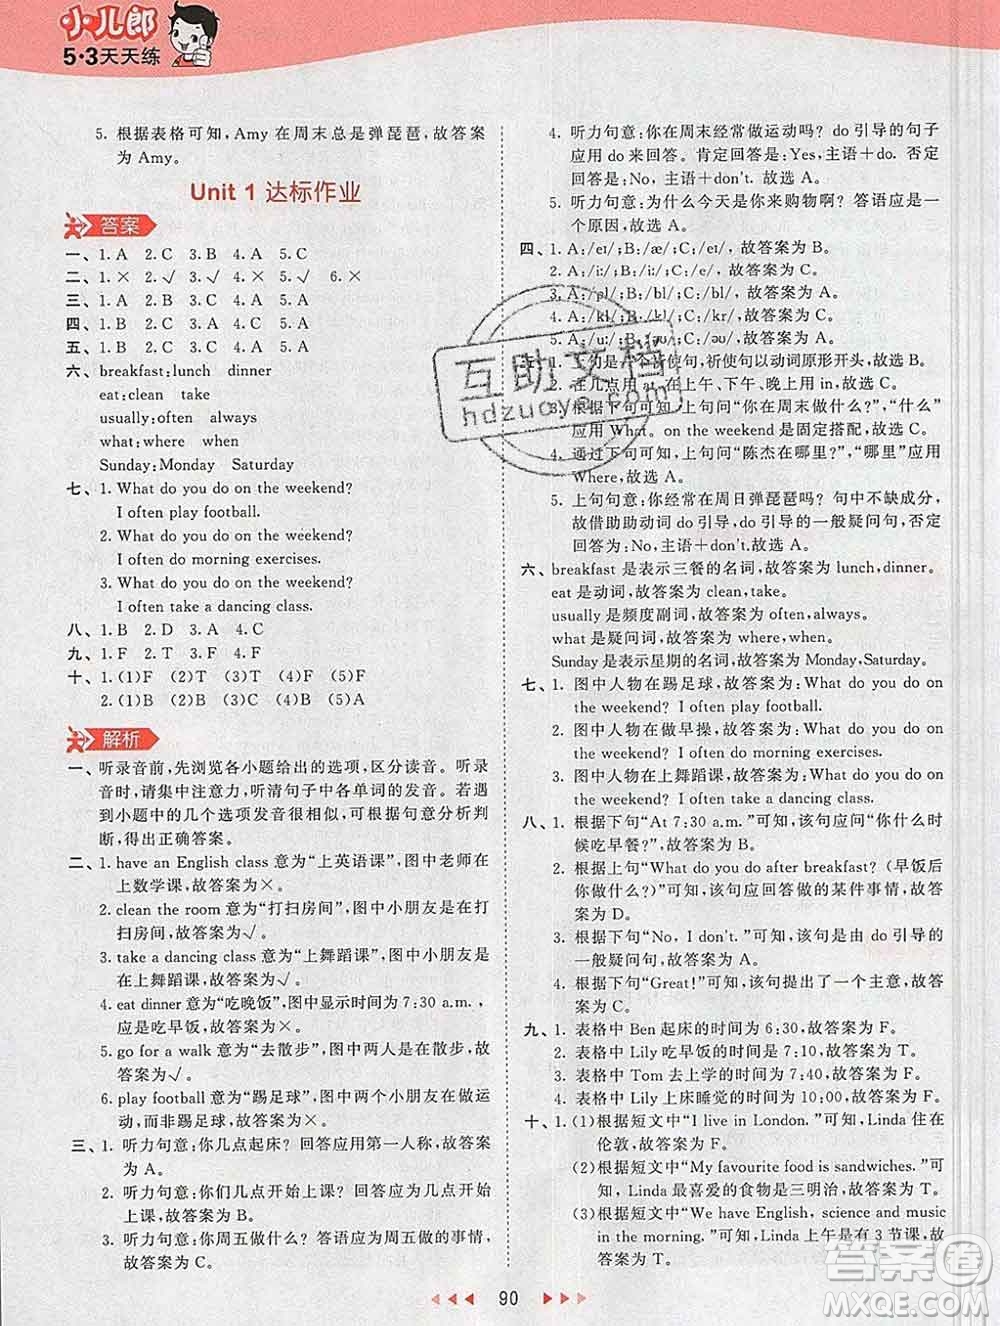 小儿郎
5·3天天练
5. 根据表格可知,Amy 在周末总是弹琵琶,故答案
为 Amy。
Unit 1 达标作业
答案
一、1. A 2. C 3. B 4. A 5. C
二、1. × 2. √ 3. √ 4. × 5. √ 6. ×
三、1. A 2. B 3. C 4. A 5. A
四、1. B 2. A 3. A 4. C 5. A
五、1. B 2. A 3. C 4. A 5. A
六、breakfast:lunch dinner
eat:clean take
usually:often always
what:where when
Sunday:Monday Saturday
七、1. What do you do on the weekend?
I often play football.
2. What do you do on the weekend?
I often do morning exercises.
3. What do you do on the weekend?
I often take a dancing class.
八、1. B 2. D 3. A 4. C
九、1. F 2. T 3. F 4. F
十、1. (1)F (2)T (3)T (4)F (5)F
2. (1)B (2)C (3)B (4)B (5)A
解析
一、听录音前,先浏览各小题给出的选项,区分读音。听录
音时,请集中注意力,听清句子中各单词的发音。若遇
到小题中的几个选项发音很相似,可根据句意分析判
断,得出正确答案。
二、1. have an English class 意为“上英语课”,图中老师在
上数学课,故答案为×。
2. clean the room 意为“打扫房间”,图中小朋友是在打
扫房间,故答案为√。
3. take a dancing class 意为“上舞蹈课”,图中小朋友是
在上舞蹈课,故答案为√。
4. eat dinner 意为“吃晚饭”,图中显示时间为 7:30 a.m.,
应是吃早饭,故答案为×。
5. go for a walk 意为“去散步”,图中两人是在散步,故
答案为√。
6. play football 意为“踢足球”,图中小朋友在做运
动,而非踢足球,故答案为×。
三、1. 听力句意:你几点起床? 回答应用第一人称,故答案
为 A。
2. 听力句意:你们几点开始上课? 回答应为几点开始
上课,故答案为 B。
3. 听力句意:你周五做什么? 答语应为做的事情,
故答案为 C。
4. 听力句意:你在周末经常做运动吗? do 引导的句子
应用 do 来回答。肯定回答为:Yes,主语+do. 否定
回答为:No,主语+don't. 故选 A。
5. 听力句意:为什么今天是你来购物啊? 答语应为
一个原因,故选 A。
四、1. A:/eɪ/;B:/æ/;C:/eɪ/,故答案为 B。
2. A:/i:/;B:/i:/;C:/e/,故答案为 A。
3. A:/pl/;B:/bl/;C:/bl/,故答案为 A。
4. A:/kl/;B:/kl/;C:/kr/,故答案为 C。
5. A:/u:/;B:/əʊ/;C:/əʊ/,故答案为 A。
五、1. 上句是个祈使句,祈使句以动词原形开头,故选 B。
2. 在几点用 at,在上午、下午、晚上用 in,故选 A。
3. 根据下句可知,上句问“你在周末做什么?”,“什么”
应用 What。on the weekend 是固定搭配,故选 C。
4. 通过下句可知,上句问“陈杰在哪里?”,“哪里”应用
Where,故选 A。
5. 上句句意:你经常在周日弹琵琶吗? 句中不缺成分,
故借助助动词 do 引导,do 引导的一般疑问句,否定
回答为:No,主语+don't. 故选 A。
六、breakfast 是表示三餐的名词,故答案为 lunch,dinner。
eat 是动词,故答案为 clean,take。
usually 是频度副词,故答案为 often,always。
what 是疑问词,故答案为 where,when。
Sunday 是表示星期的名词,故答案为 Monday,Saturday。
七、1. 图中人物在踢足球,故答案为:What do you do on
the weekend? I often play football.
2. 图中人物在做早操,故答案为:What do you do on
the weekend? I often do morning exercises.
3. 图中人物在上舞蹈课,故答案为:What do you do on
the weekend? I often take a dancing class.
八、1. 根据下句“At 7:30 a.m.”可知,该句应问“你什么时
候吃早餐?”,故答案为 B。
2. 根据上句“What do you do after breakfast? (早饭后
你做什么?)”可知,该句应回答做的某件事情,故答
案为 D。
3. 根据下句“No, I don't.”可知,该句是由 do 引导的
一般疑问句,故答案为 A。
4. 根据下句“Great!”可知,该句提出了一个主意,故答
案为 C。
九、1. 表格中 Ben 起床的时间为 6:30,故答案为 F。
2. 表格中 Lily 吃早饭的时间是 7:10,故答案为 T。
3. 表格中 Tom 去上学的时间是 7:30,故答案为 F。
4. 表格中 Lily 上床睡觉的时间为 10:00,故答案为 F。
十、1. (1)根据短文中“I live in London.”可知,Linda 住在
伦敦,故答案为 F。
(2)根据短文中“My favourite food is sandwiches.”可
知,Linda 最喜爱的食物是三明治,故答案为 T。
(3)根据短文中“We have English, science and music
in the morning.”可知,Linda 上午是有 3 节课,
故答案为 T。
90
互助文档
hdzuoye.com
答案圈
MXQE.COM